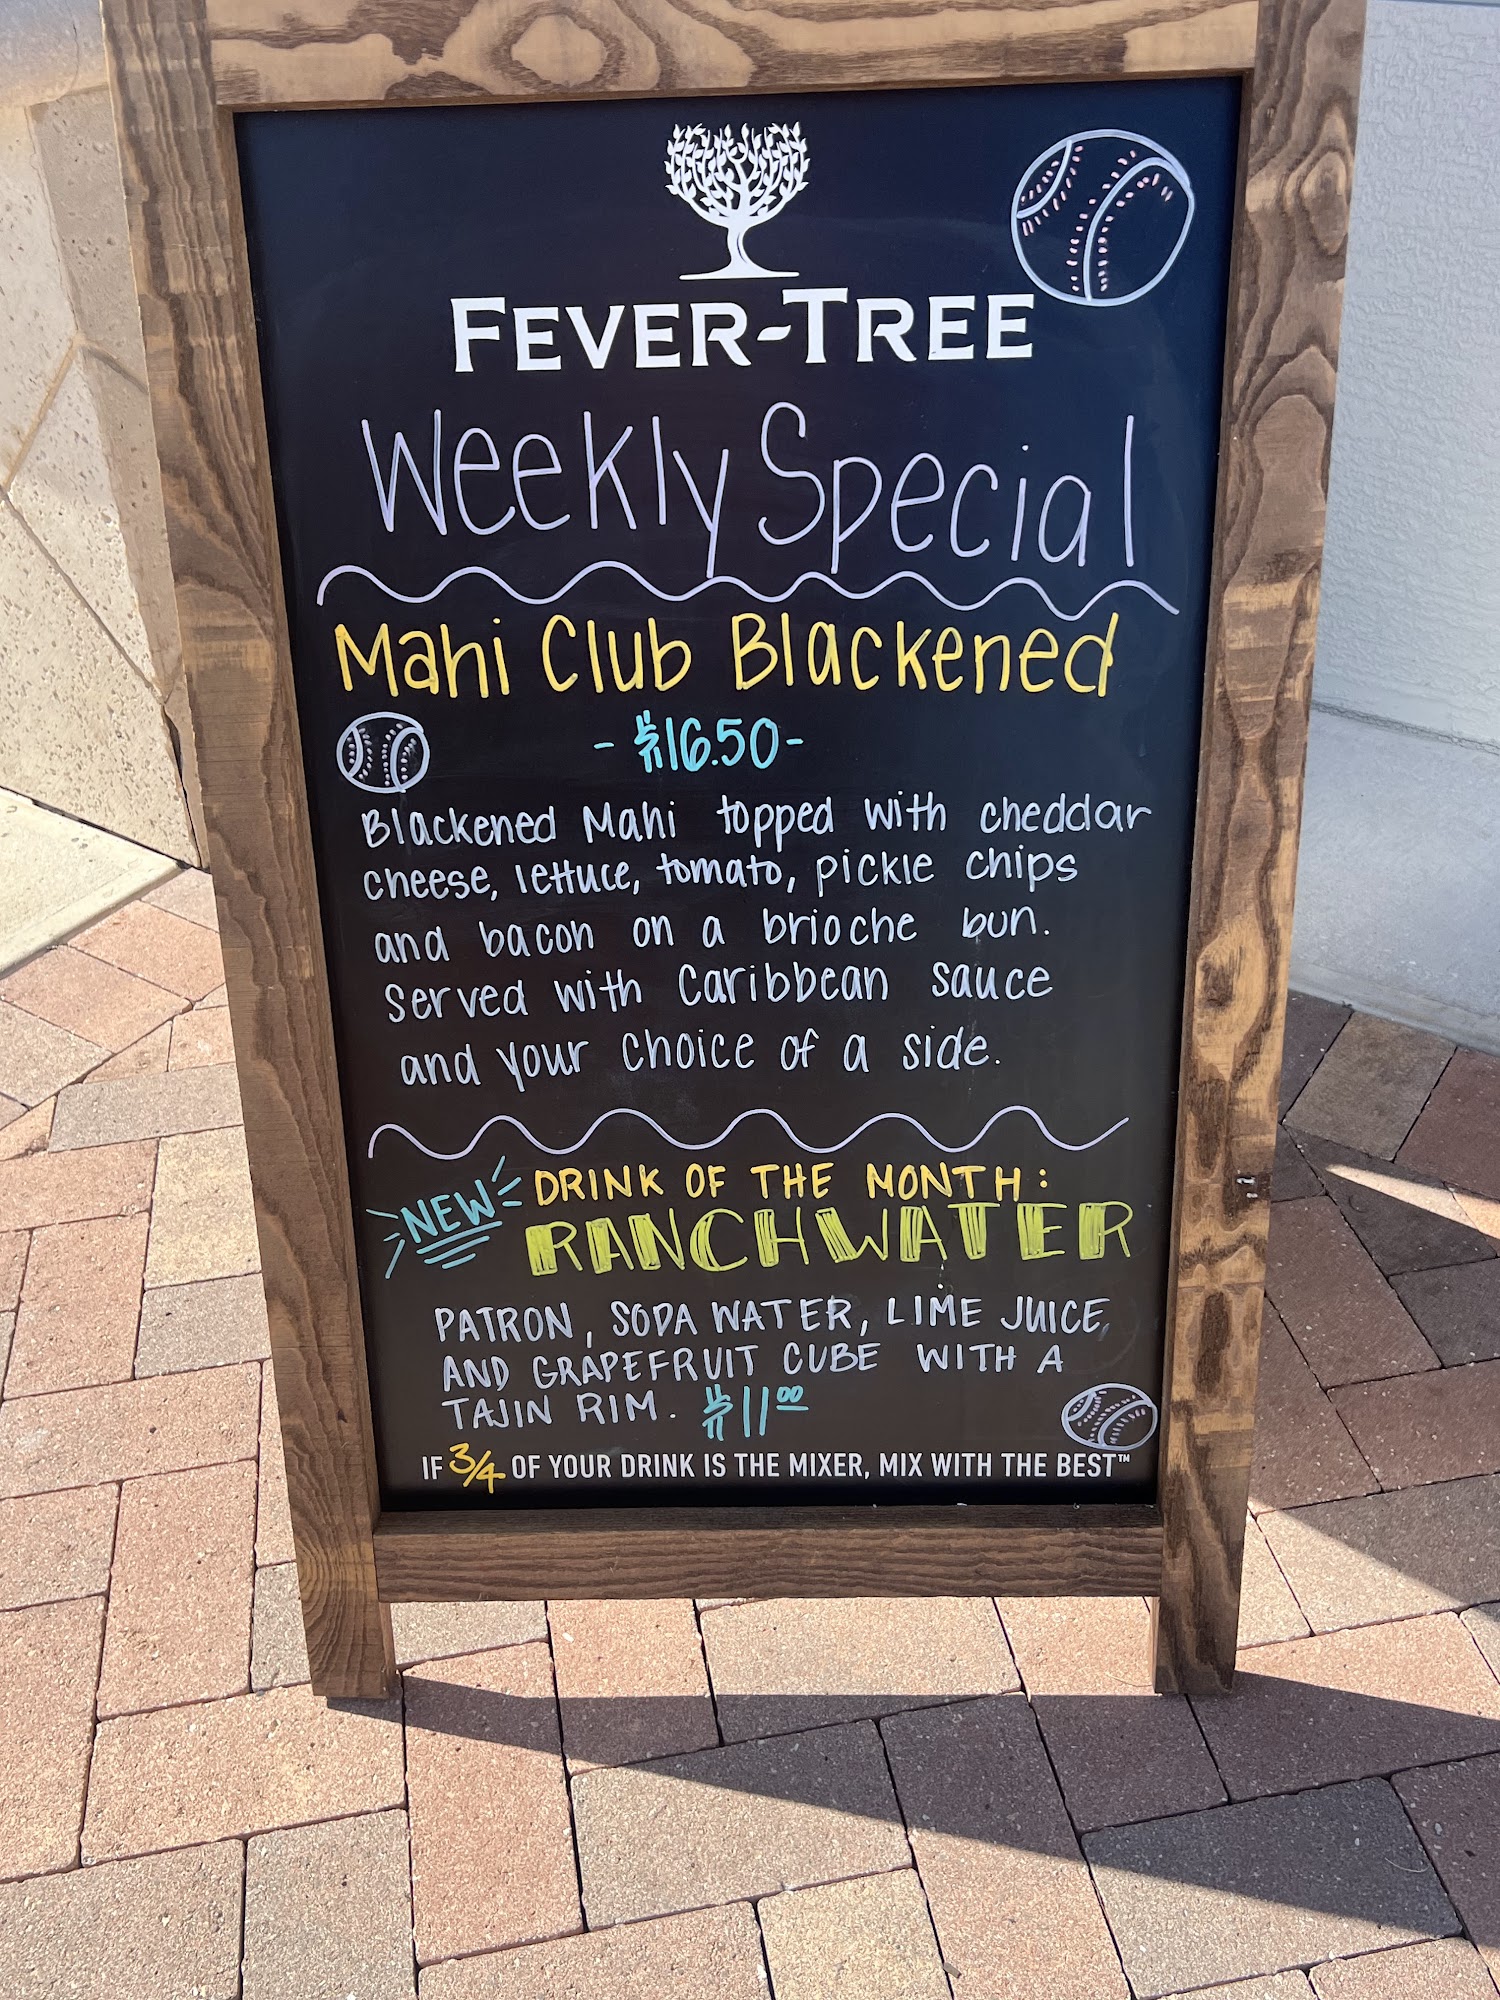 FEVER-TREE
Weekly Special
Mahi Club Blackened
- $16.50 -
Blackened Mahi topped with cheddar
cheese, lettuce, tomato, pickle chips
and bacon on a brioche bun.
Served with Caribbean sauce
and your choice of a side.
NEW DRINK OF THE MONTH:
RANCHWATER
PATRON, SODA WATER, LIME JUICE,
AND GRAPEFRUIT CUBE WITH A
TAJIN RIM. $11.00
IF 3/4 OF YOUR DRINK IS THE MIXER, MIX WITH THE BEST™